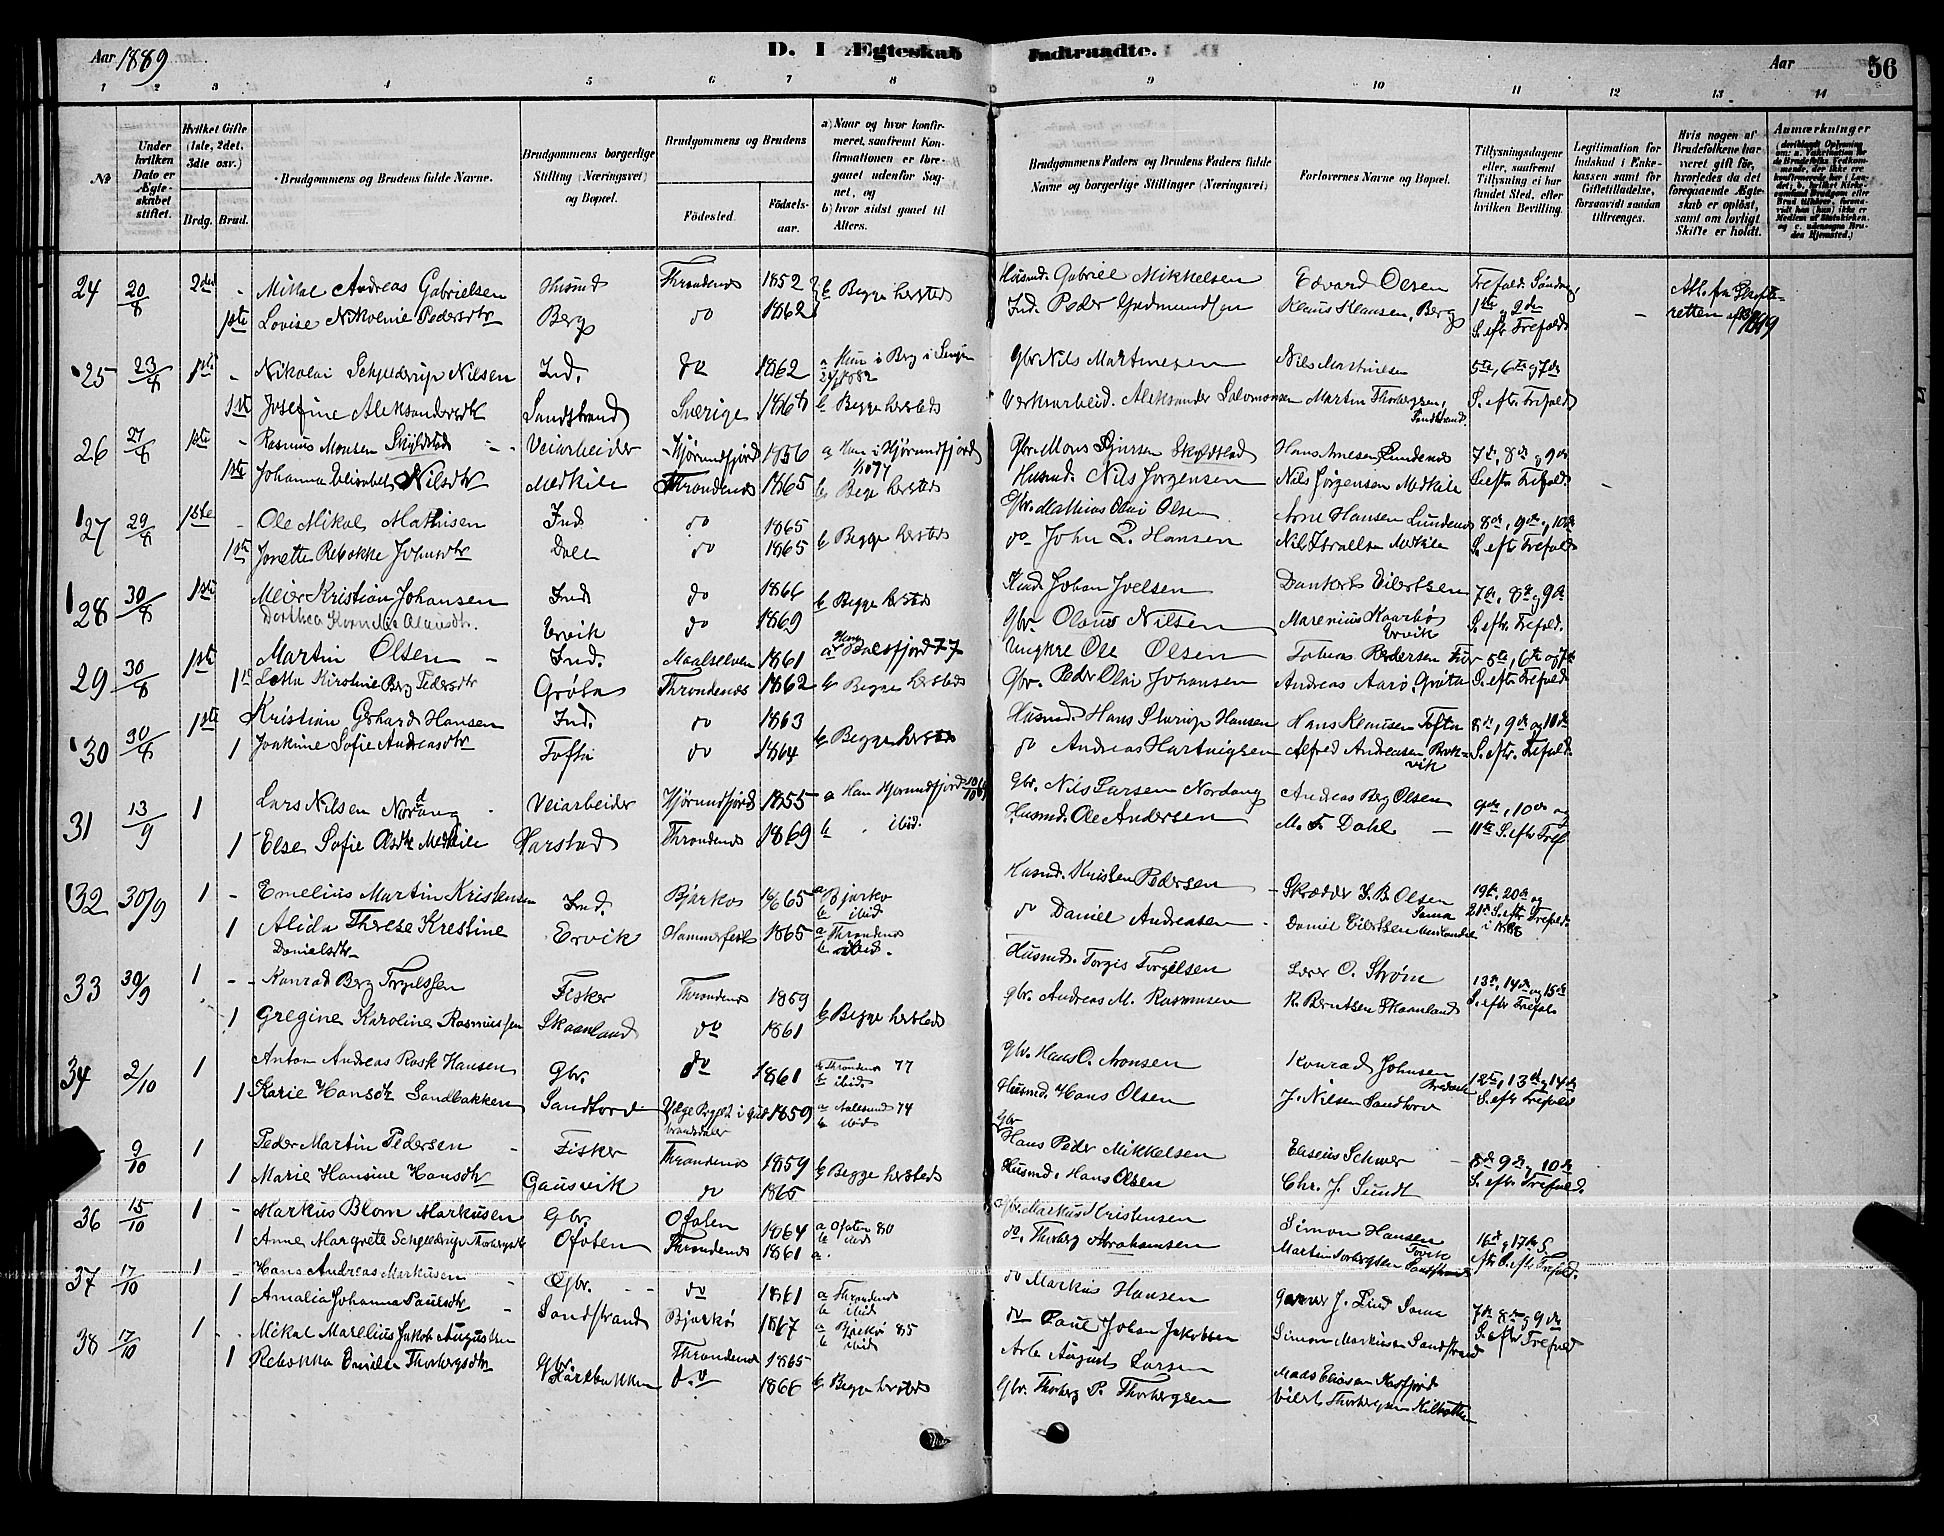 Aar 1889
D. I Ægteskab Indtraadte.
Aar
56
1 2 3 4 5 6 7 8 9 10 11 12 13 14
№
Under hvilken Dato er Ægteskabet stiftet.
Hvilket Gifte (1ste, 2det, 3die osv.)
Brdg. Brud.
Brudgommens og Brudens fulde Navne.
Brudgommens borgerlige Stilling (Næringsvei) og Bopæl.
Brudgommens og Brudens
Fødested. Fødsels-aar.
a) Naar og hvor konfirmeret, saafremt Konfirmationen er foregaaet udenfor Sognet, og
b) hvor sidst gaaet til Alters.
Brudgommens Faders og Brudens Faders fulde Navne og borgerlige Stillinger (Næringsvei)
Forlovernes Navne og Bopæl.
Tillysningsdagene eller, saafremt Tillysning ei har fundet Sted, efter hvilken Bevilling.
Legitimation for Indskud i Enkekassen samt for Giftetilladelse, forsaavidt saadan tiltrænges.
Hvis nogen af Brudefolkene har været gift før, hvorledes da det foregaaende Ægteskab er opløst, samt om lovligt Skifte er holdt.
Anmærkninger
24 20/8 2det - Mikal Andreas Gabrielsen Husmd Throndenes 1852 b Begge hersteds Husmd. Gabriel Mikkelsen Edvard Olsen Trefold. Søndag
1ste Lovise Nikoline Pedersdtr Berg do 1862 Ind. Peder Gudmundsen Klaus Hansen, Berg 1ste og 2de S. eftr Trefold - Att. fra Skifteretten af 1889
25 23/8 1ste - Nikolai Schjelderup Nilsen Ind. do 1862 a Hun i Berg i Senjen 1882 Gbr Nils Martinesen Nils Martinesen 5te, 6te og 7de
1ste Josefine Aleksandersdtr Sandstrand Sverige 1868 b Begge hersteds Verksarbeid. Aleksander Salomonsen Martin Thorbergsen, Sandstrand. S. eftr. Trefold
26 27/8 1ste - Rasmus Monsen Skyldstad Veiarbeider Hjørundfjord 1856 a Han i Hjørundfjord Gbr. Mons Skyldstad Hans Arnesen Lundenes 7de, 8de og 9de
1ste Johanna Elisabet Nilsdtr Medkile Throndenes 1865 b Begge hersteds Husmd. Nils Jørgensen Nils Jørgensen Medkile S. eftr Trefold.
27 29/8 1ste - Ole Mikal Mathisen Ind do 1865 b Begge hersteds Gbr. Mathias Olai Olsen Arne Hansen Lundenes 8de, 9de og 10de
1ste Jonette Rebekke Johnsdtr Dale do 1865 do John L. Hansen Medkile S. eftr Trefold
28 30/8 1ste Meier Kristian Johansen Ind do 1866 b Begge hersteds Ind. Johan Joelsen Dankert Eilertsen 7de, 8de og 9de
Dorthea Kornelia Olausdtr. Ervik do 1869 Gbr. Olaus Nilsen Marenius Kaarbø Ervik S. eftr. Trefold.
29 30/8 1ste Martin Olsen - Ind. Maalselven 1861 a Balsfjord 77 Ungkre Ole Olsen Tobias Pedersen 5te, 6te og 7de
1ste Lotta Kirstine Berg Pedersdtr Grøta Throndenes 1862 b Begge hersteds Gbr. Peder Olai Johansen Andreas Aarø, Grøta S. eftr Trefold
30 30/8 1ste Kristian Gerhard Hansen Ind. do 1863 b Begge hersteds Husmd. Hans Sturup Hansen Hans Klausen Tofta 8de, 9de og 10de
1 Joakime Sofie Andreasdtr Tofta do 1864 do Andreas Hartvigsen Alfred Andreasen Brokvik S. eftr. Trefold.
31 13/9 1 Lars Nilsen Nordang - Veiarbeider Hjørundfjord 1855 a Han Hjørundfjord Gbr. Nils Larsen Nordang Andreas Berg Olsen 9de, 10de og
1 Else Sofie Olsdtr Medkile Harstad Throndenes 1869 b ibid. Husmd. Ole Andersen M. F. Dahl - 11te S. eftr Tref
32 30/9 1 - Emelius Martin Kristensen Ind. Bjarkø 1865 a Bjarkø b ibid Husmd. Kristen Pedersen - Skrædder J. B. Olsen Sama 19de, 20de og
1 Alida Therese Krestine Danielsdtr Ervik Hammerfest 1865 a Throndenes b ibid. do Daniel Andreasen - Daniel Eilertsen 21de S. eftr Trefold. i 1888
33 30/9 1 - Konrad Berg Torgilssen Fisker Throndenes 1859 b Begge hersteds Husmd. Torgis Torgilsen Lærer O. Strøm 13de, 14de og 15de
1 Gregine Karoline Rasmussen Skaanland do 1861 Gbr. Andreas M. Rasmusen R. Berntsen Skaanland S. eftr Trefold
34 2/10 1 Anton Andreas Rask Hansen Gbr. do 1861 a Throndenes 77 b ibid Gbr. Hans O. Aronsen Konrad Johnsen 12te, 13de og 14de
1 Karie Hansdtr Sandbakken Sandtorv i Gudbrandsdalen 1859 a Aalesund 74 b ibid Husmd. Hans Olsen J. Nilsen Sandtorv S. eftr Trefold
9/10 1 Peder Martin Pedersen Fisker Throndenes 1859 b Begge hersteds Gbr Hans Peder Mikkelsen Elseus Schver 8de 9de og 10de
1 Marie Hansine Hansdtr Gausvik do 1865 Husmd. Hans Olsen Chr. J. Sundt S. eftr Trefold.
36 15/10 1 - Markus Blom Markusen Gbr. Ofoten 1864 a Ofoten 80 b ibid Gbr. Markus Kristensen Simon Hansen Tovik 16de og 17de S.
1 Anne Margrete Schjelderup Thorbergsdtr Ofoten Throndenes 1861 a. do. Thorberg Abrahamsen Martin Torbergsen Sandstrand eftr S. eftr Trefold.
37 17/10 1 - Hans Andreas Markusen Gbr. - do 1861 a Throndenes b ibid do Markus Hansen J. Lind Sama 7de 8de og 9de
1 Amalia Johanna Paulsdtr - Sandstrand Bjarkø 1867 a Bjarkø 85 b ibid do Paul Johan Jakobsen Simon Markusen Sandstrand S. eftr Trefold
38 17/10 1 Mikal Marelius Jakob Augustsen Gbr. Throndenes 1865 b Begge hersteds Arb. August Larsen Mads Eliasen Kasfjord
1 Rebekka Emilie Thorbergsdtr do 1866 Gbr. Thorberg P. Thorbergsen Eilert Thorbergsen Kilbotten